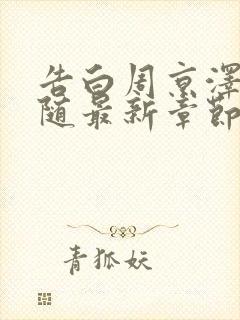 告白周京澤
随最新章節
青狐妖